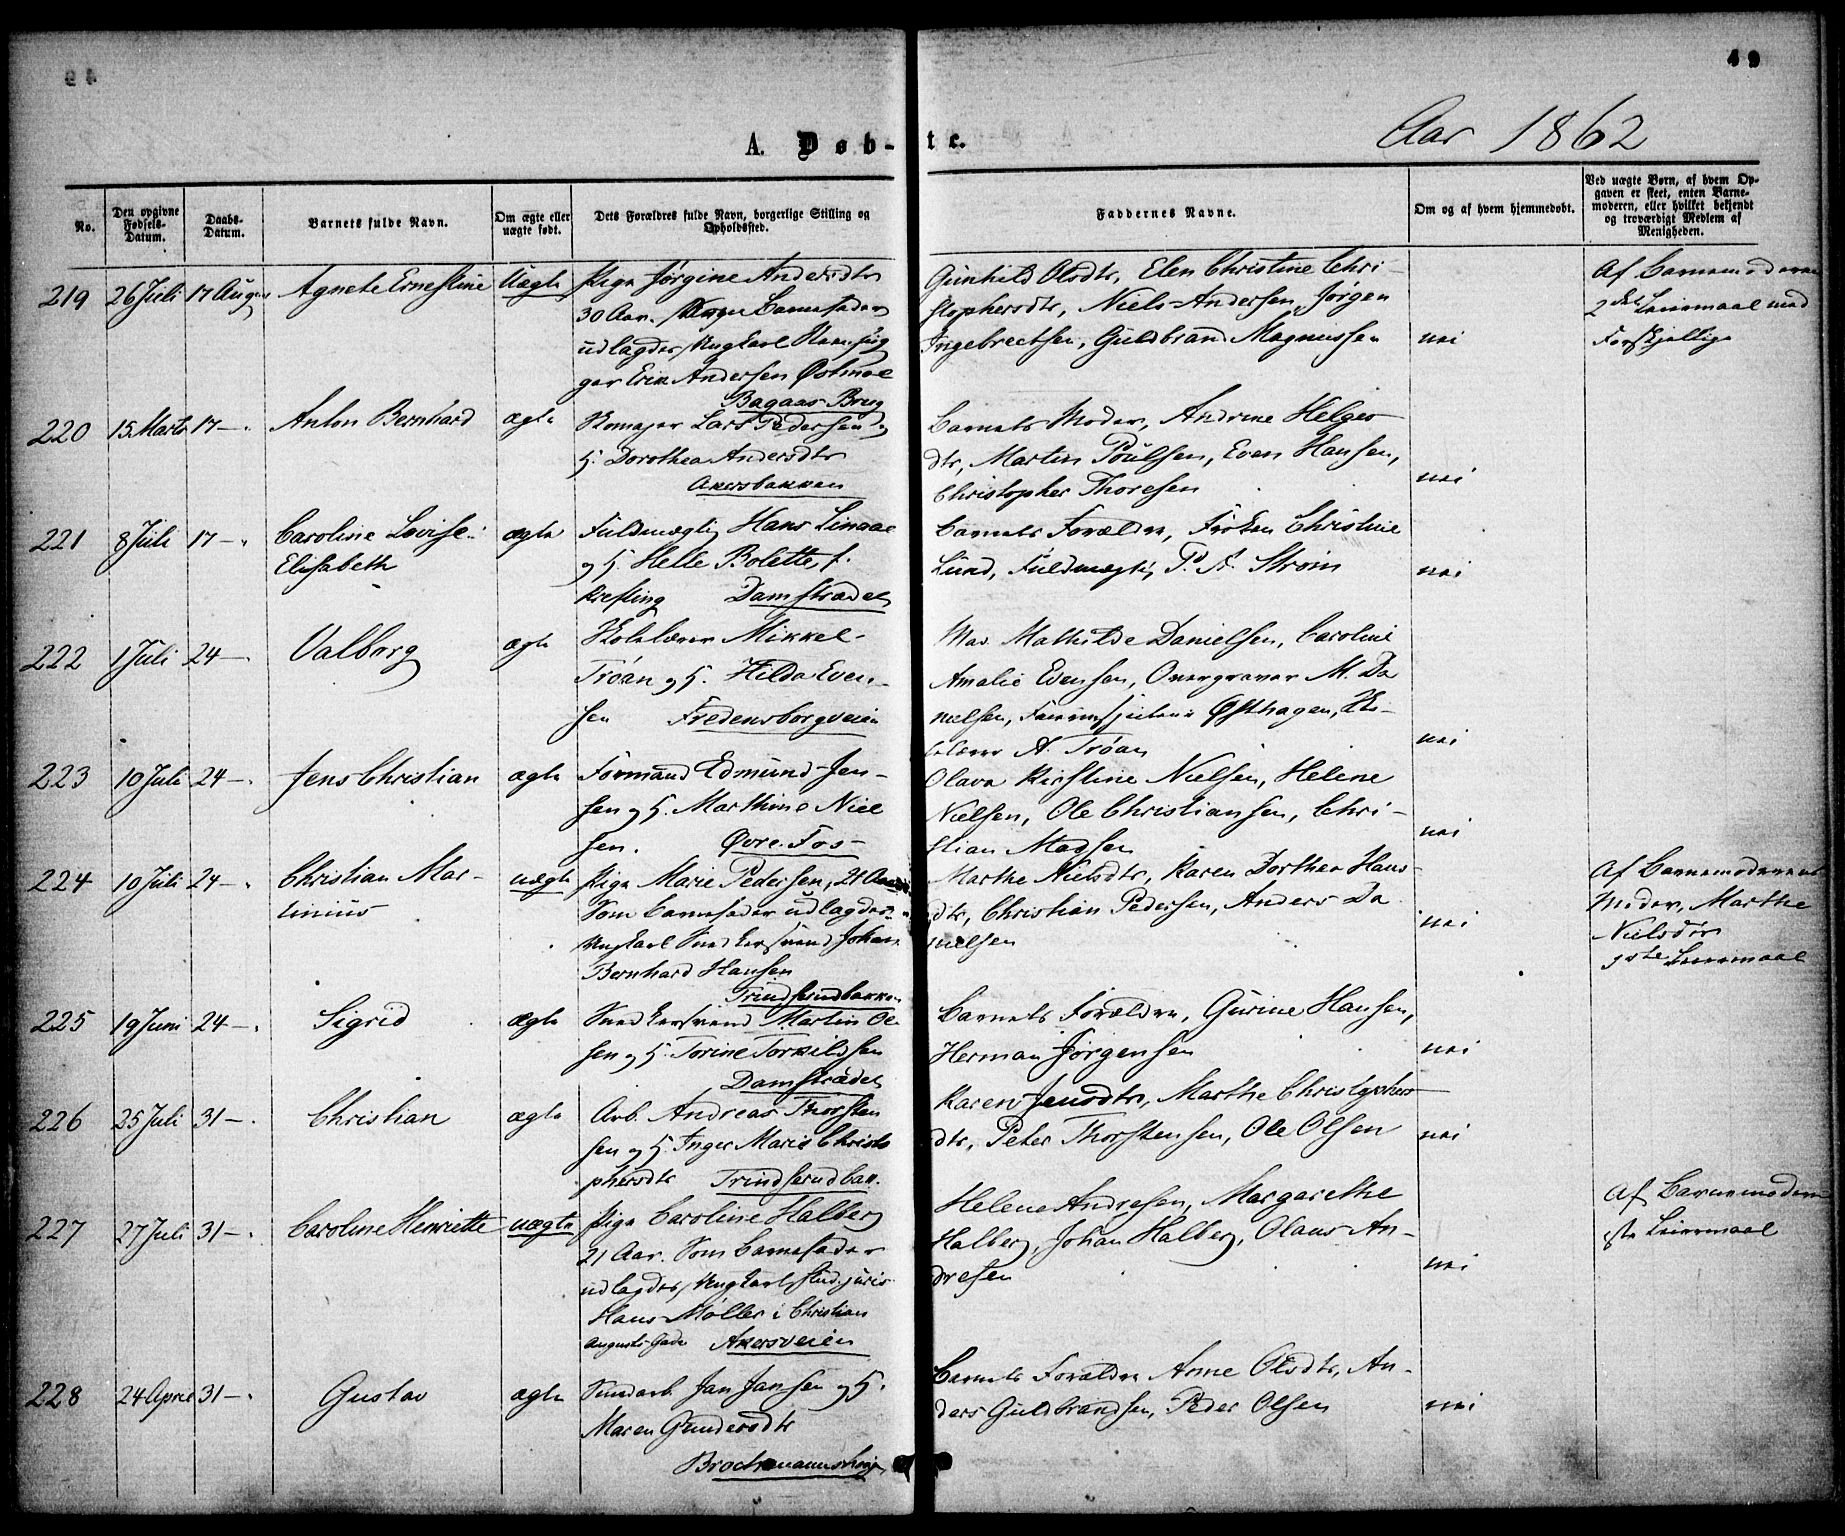 49
Aar 1862
A. Døb- te.
No.
Den opgivne Fødsels-Datum.
Daabs-Datum.
Barnets fulde Navn.
Om ægte eller uægte født.
Dets Forældres fulde Navn, borgerlige Stilling og Opholdssted.
Faddernes Navne.
Om og af hvem hjemmedøbt.
Ved uægte Børn, af hvem Opgaven er skeet, enten Barnemoderen, eller hvilket bekjendt og troværdigt Medlem af Menigheden.
219 26 Juli 17 August Agnete Ernestine Uægte
Pige Jørgine Andersdtr
30 Aar. Barnefader
udlagdes Ungkarl
Erik Andersen Østmoe
Bagaas Brug
Gunhild Olsdtr, Elen Christine Chri-
stophersdtr, Niels Andersen, Jørgen
Ingebrectsen, Guldbrand Magnussen
nei
Af Barnemoderen
2det Leiermaal med
Forskjellige
220 15 Marts 17 — Anton Bernhard ægte
Skomager Lars Pedersen og
H. Dorothea Andersdtr
Akersbakken
Barnets Moder, Andrine Helges-
dtr, Martin Poulsen, Even Hansen,
Christopher Thoresen
nei
221 8 Juli 17 — Caroline Lovise
Elisabeth
ægte
Fuldmægtig Hans Linaae
og H. Helle Bolette f.
Krefting Damstrædet
Barnets Forældre, Frøken Christine
Lund, Fuldmægtig P. A. Strøm
nei
222 1 Juli 24 — Valborg ægte
Skolelærer Mikkel
Trøan og H. Hilda Even-
sen Fredensborgveien
Mad. Mathilde Danielsen, Caroline
Amalie Evensen, Overgraver M. Da
nielsen, Østhagen, Sko-
lelærer A. Trøan
nei
223 10 Juli 24 — Jens Christian ægte
Formand Edmund Jen-
sen og H. Marthine Niel
sen. Øvre Fos
Olava Kirstine Nielsen, Helene
Nielsen, Ole Christiansen, Chri-
stian Madsen
nei
224 10 Juli 24 — Christian Mar-
tinius
uægte
Pige Marie Pedersen, 21 Aar
Som Barnefader udlagdes
Ungkarl Snedkersvend Johan
Bernhard Hansen
Trindsrudbakken
Marthe Nielsdtr, Karen Dorthea Hans-
dtr, Christian Pedersen, Anders Da
nielsen
nei
Af Barnemoderens
Moder, Marthe
Nielsdtr
1ste Leiermaal
225 19 Juni 24 — Sigrid ægte
Snedkersvend Martin Ol-
sen og H. Torine Torkildsen
Damstrædet
Barnets Forældre, Gurine Hansen,
Herman Jørgensen
nei
226 25 Juli 31 — Christian ægte
Arb. Andreas Thorsten
sen og H. Inger Marie Christo
phersdtr Trindsrudbak.
Karen Jensdtr, Marthe Christophers-
dtr, Peter Thorstensen, Ole Olsen
nei
227 27 Juli 31 — Caroline Henriette uægte
Pige Caroline Halberg
21 Aar. Som Barnefader
udlagdes, Ungkarl, Stud. juris
Hans Møller i Christian
Augusts Gade Akersveien
Helene Andresen, Margarethe
Halberg, Johan Halberg, Olaus An-
dresen
nei
Af Barnemoderen
1ste Leiermaal
228 24 April 31 — Gustav ægte
Jan Jansen og H.
Maren Gundersdtr
Brochmannshougen
Barnets Forældre Anne Olsdtr, An-
ders Guldbrandsen, Peder Olsen
nei